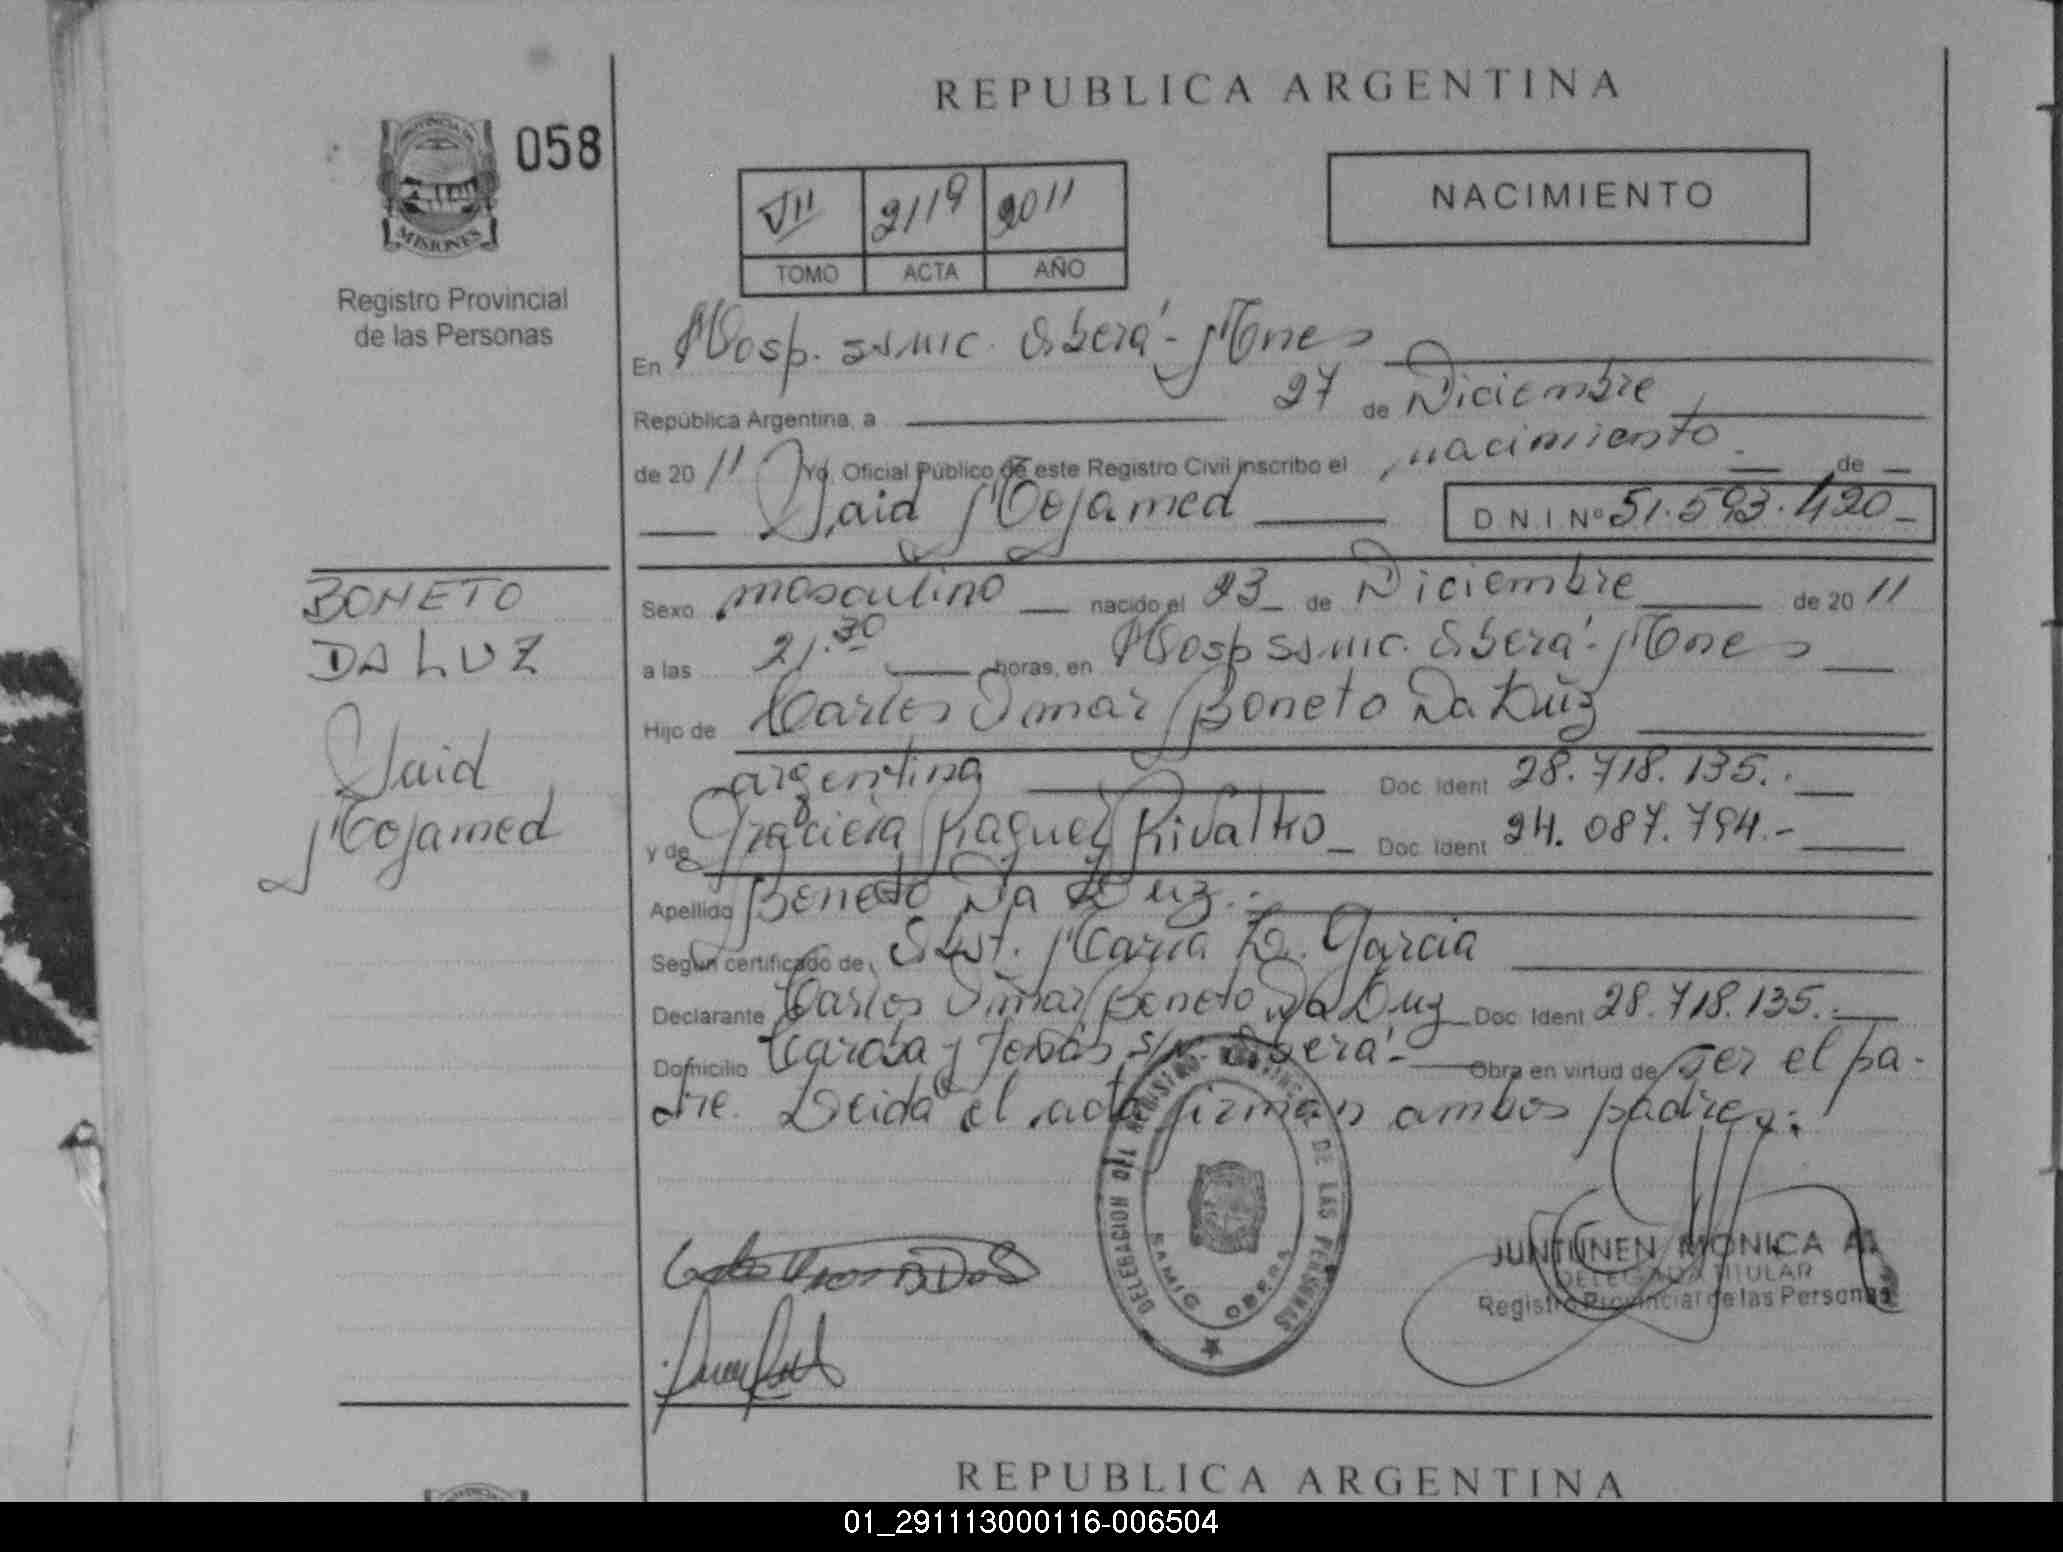 REPUBLICA ARGENTINA
PROVINCIA DE
MISIONES
058
Registro Provincial
de las Personas
VII 2119 2011
TOMO ACTA AÑO
NACIMIENTO
En Hosp. SS.MIC. Oberá - Mnes
República Argentina, a 27 de Diciembre
de 2011 Yo, Oficial Público de este Registro Civil inscribo el nacimiento de
Said Mojamed D N I Nº 51.593.420-
BONETO
DA LUZ
Said
Mojamed
Sexo masculino nacido el 23 de Diciembre de 2011
a las 21.30 horas, en Hosp SS.MIC. Oberá - Mnes
Hijo de Carlos Omar Boneto Da Luz
argentina Doc. Ident 28.718.135.-
y de Graciela Raquel Rivalko Doc. Ident 24.087.794.-
Apellido Boneto Da Luz.-
Según certificado de Obst. María E. Garcia
Declarante Carlos Omar Boneto Da Luz Doc. Ident 28.718.135.-
Domicilio s/n. Oberá - Obra en virtud de ser el pa-
dre. Leida el acta firman ambos padres.-
DELEGACION DEL REGISTRO PROVINCIAL DE LAS PERSONAS
SAMIC OBERA
JUNTUNEN MONICA A.
DELEGADA TITULAR
Registro Provincial de las Personas
REPUBLICA ARGENTINA
01_291113000116-006504